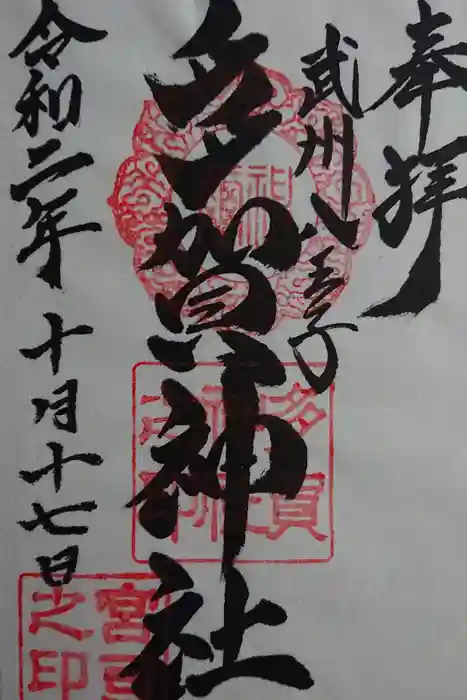 奉拝
武州八王子
多賀神社
令和二年十月十七日
多賀
神社
之印
宮司
之印